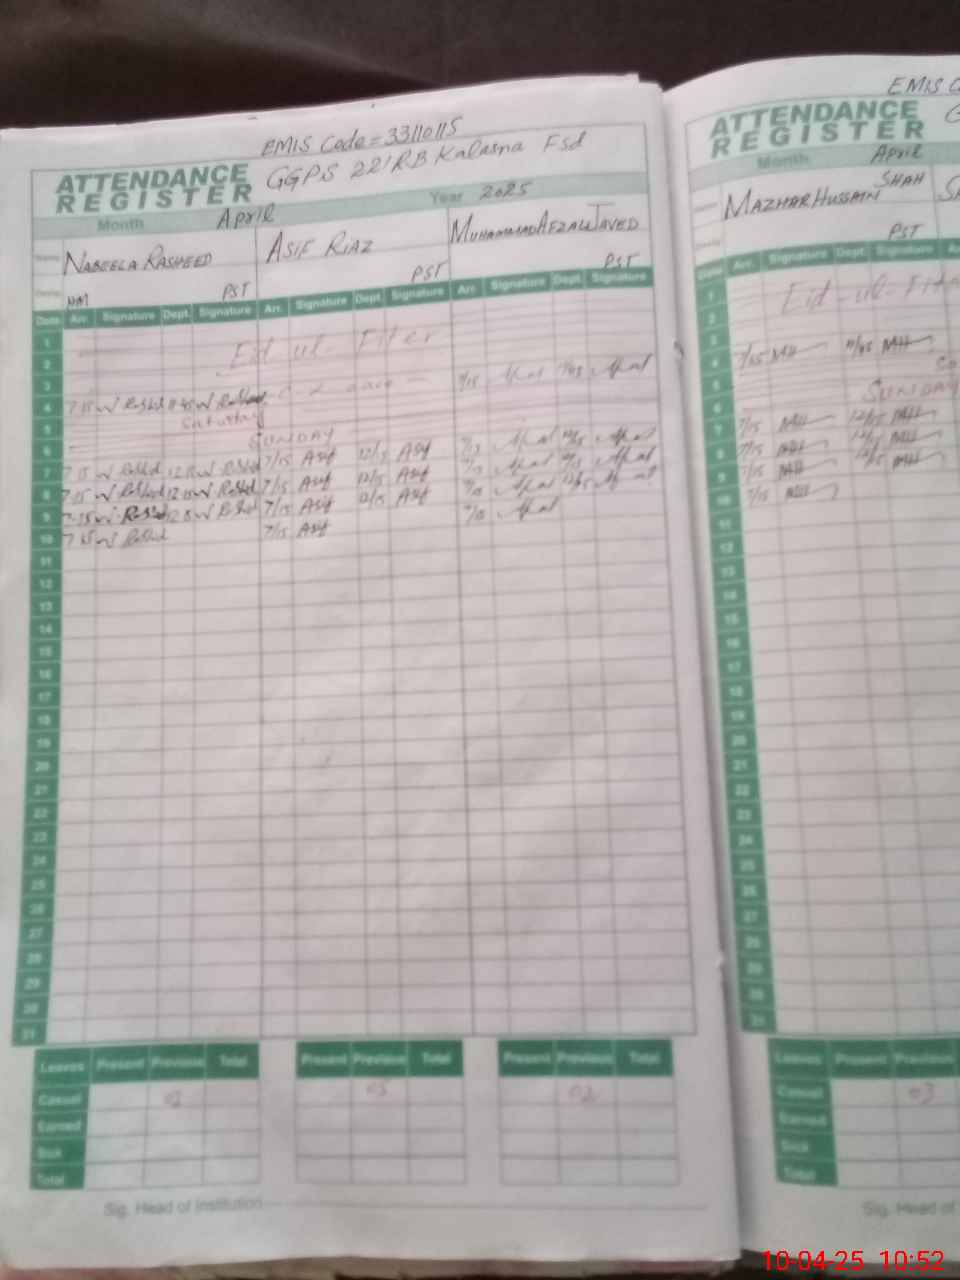 EMIS Code = 33110115
ATTENDANCE REGISTER
GGPS 221 RB Kalasna Fsd
Month April Year 2025
NABEELA RASHEED ASIF RIAZ MUHAMMAD AFZAL JAVED
HM PST PST PST
Date Arr. Signature Dept. Signature Arr. Signature Dept. Signature Arr. Signature Dept. Signature
1
2 Eid ul- Fiter
3
4 7 15 C-Leave 7/15
Saturday
5
6 SUNDAY
7 7 15 12 15 7/15 Asif 12/15 Asif 7/15 12/15
8 7 15 12 15 7/15 Asif 12/15 Asif 7/15 12/15
9 7 15 12 15 7/15 Asif 12/15 Asif 7/15 12/15
10 7 15 7/15 Asif 7/15
11
12
13
14
15
16
17
18
19
20
21
22
23
24
25
26
27
28
29
30
31
Leaves Present Previous Total Present Previous Total Present Previous Total
Casual 05 02
Earned
Sick
Total
Sig. Head of Institution
EMIS
ATTENDANCE
REGISTER
Month April
MAZHAR HUSSAIN SHAH
PST
Date Arr. Signature Dept. Signature
1 Eid-ul-Fitr
2
3
4 7/15 MH 11/45 MH
5
6 SUNDAY
7 7/15 MH 12/15 MH
8 7/15 MH 12/15 MH
9 7/15 MH 12/15 MH
10 7/15 MH
11
12
13
14
15
16
17
18
19
20
21
22
23
24
25
26
27
28
29
30
31
Leaves Present Previous
Casual 03
Earned
Sick
Total
Sig. Head of
10-04-25 10:52